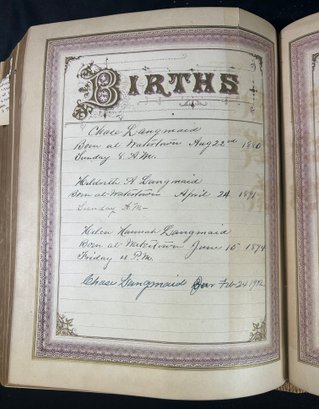 BIRTHS
Chase Langmaid
Born at Watertown Aug 22nd 1880
Sunday 8 A.M.
Hildreth A Langmaid
Born at Watertown April 24 1891
Sunday A.M-
Helen Hannah Langmaid
Born at Watertown June 15 1894
Friday P.M.
Chase Langmaid Feb 24 1912